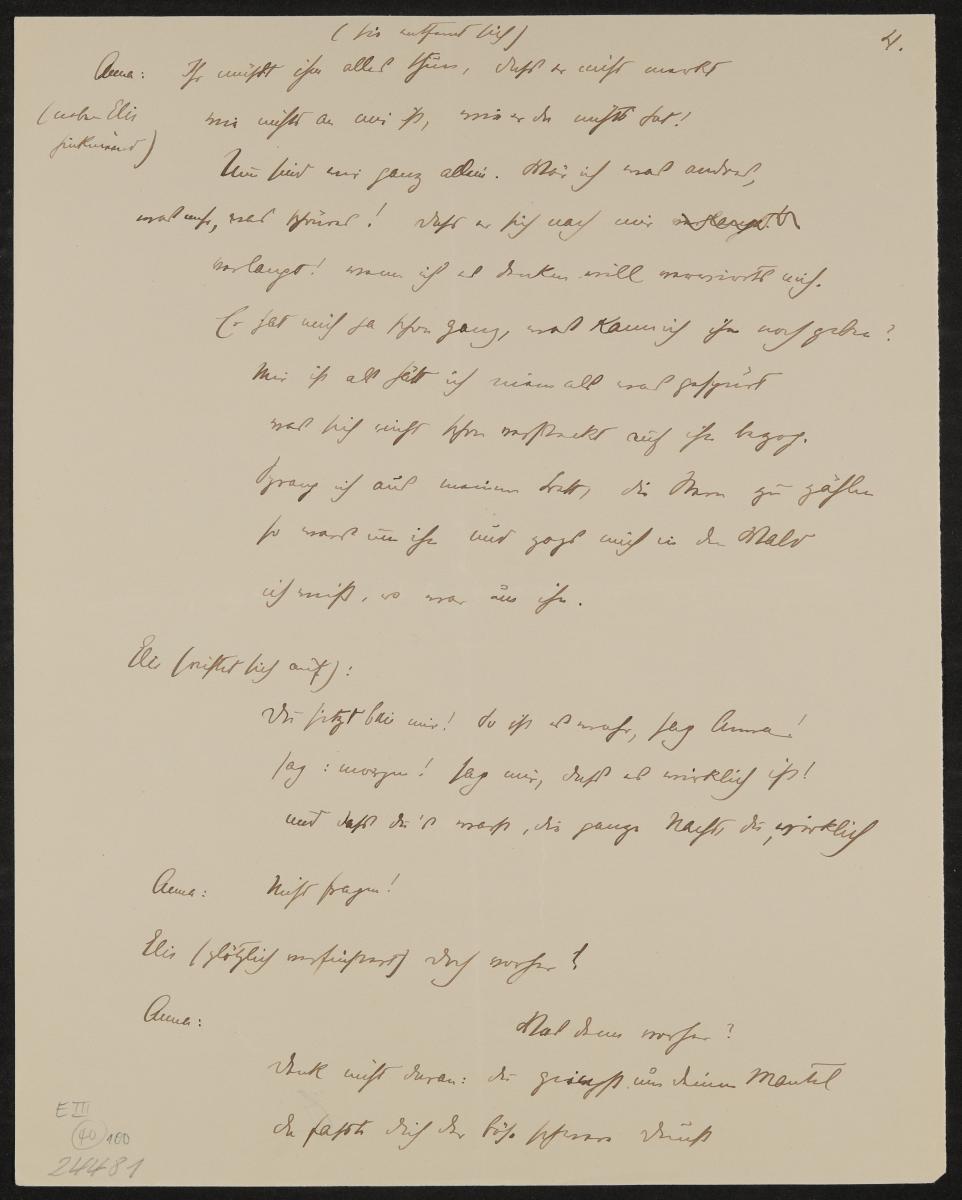 (sie entfernt sich) 4.
Anna: Ihr müsst ihm alles thun, dass er nicht merkt
(neben Elis wie nichts an mir ist, wie er da nichts hat!
hinkniend)
Nun sind wir ganz allein. Wär ich was andres,
was mehr, was schönres! dass er sich nach mir verlangt
verlangt! wenn ich es denken will verwirrts mich.
Er hat mich ja schon ganz, was kann ich ihm noch geben?
Mir ist als hätt ich niemals was gespürt
was sich nicht schon versteckt auf ihn bezog.
Sprang ich aus meinem Bett, die Stern zu zählen
so wars um ihn und zogs mich in den Wald
ich weiss, es war um ihn.
Elis (richtet sich auf):
Du jetzt bei mir! So ist es wahr, sag Anna!
sag: morgen! sag mir, dass es wirklich ist!
und dass du's warst, die ganze Nacht, du, wirklich
Anna: Nicht fragen!
Elis (plötzlich verfinstert) Doch vorher?
Anna: Was denn vorher?
Denk nicht daran: du giengst um deinen Mantel
da fasste dich der böse schwere Dunst
E III
40 100
24481